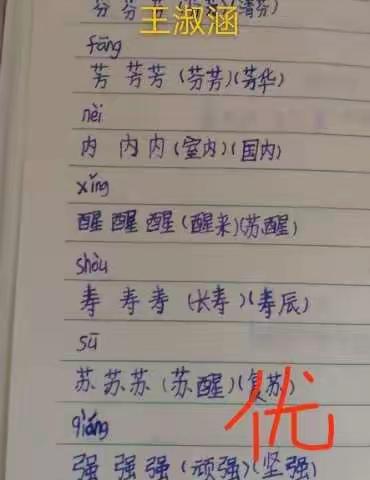 王淑涵
芬 芬 芬 (芬芳)(清芬)
fāng
芳 芳 芳 (芬芳)(芳华)
nèi
内 内 内 (室内)(国内)
xǐng
醒 醒 醒 (醒来)(苏醒)
shòu
寿 寿 寿 (长寿)(寿辰)
sū
苏 苏 苏 (苏醒)(复苏)
优
qiáng
强 强 强 (顽强)(坚强)